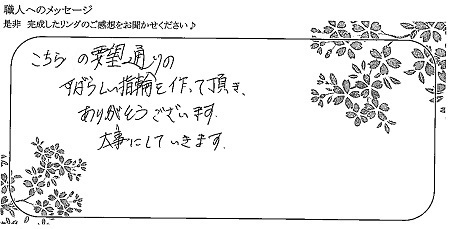 職人へのメッセージ
是非 完成したリングのご感想をお聞かせください♪
こちらの要望通りの
すばらしい指輪を作って頂き、
ありがとうございます.
大事にしていきます.